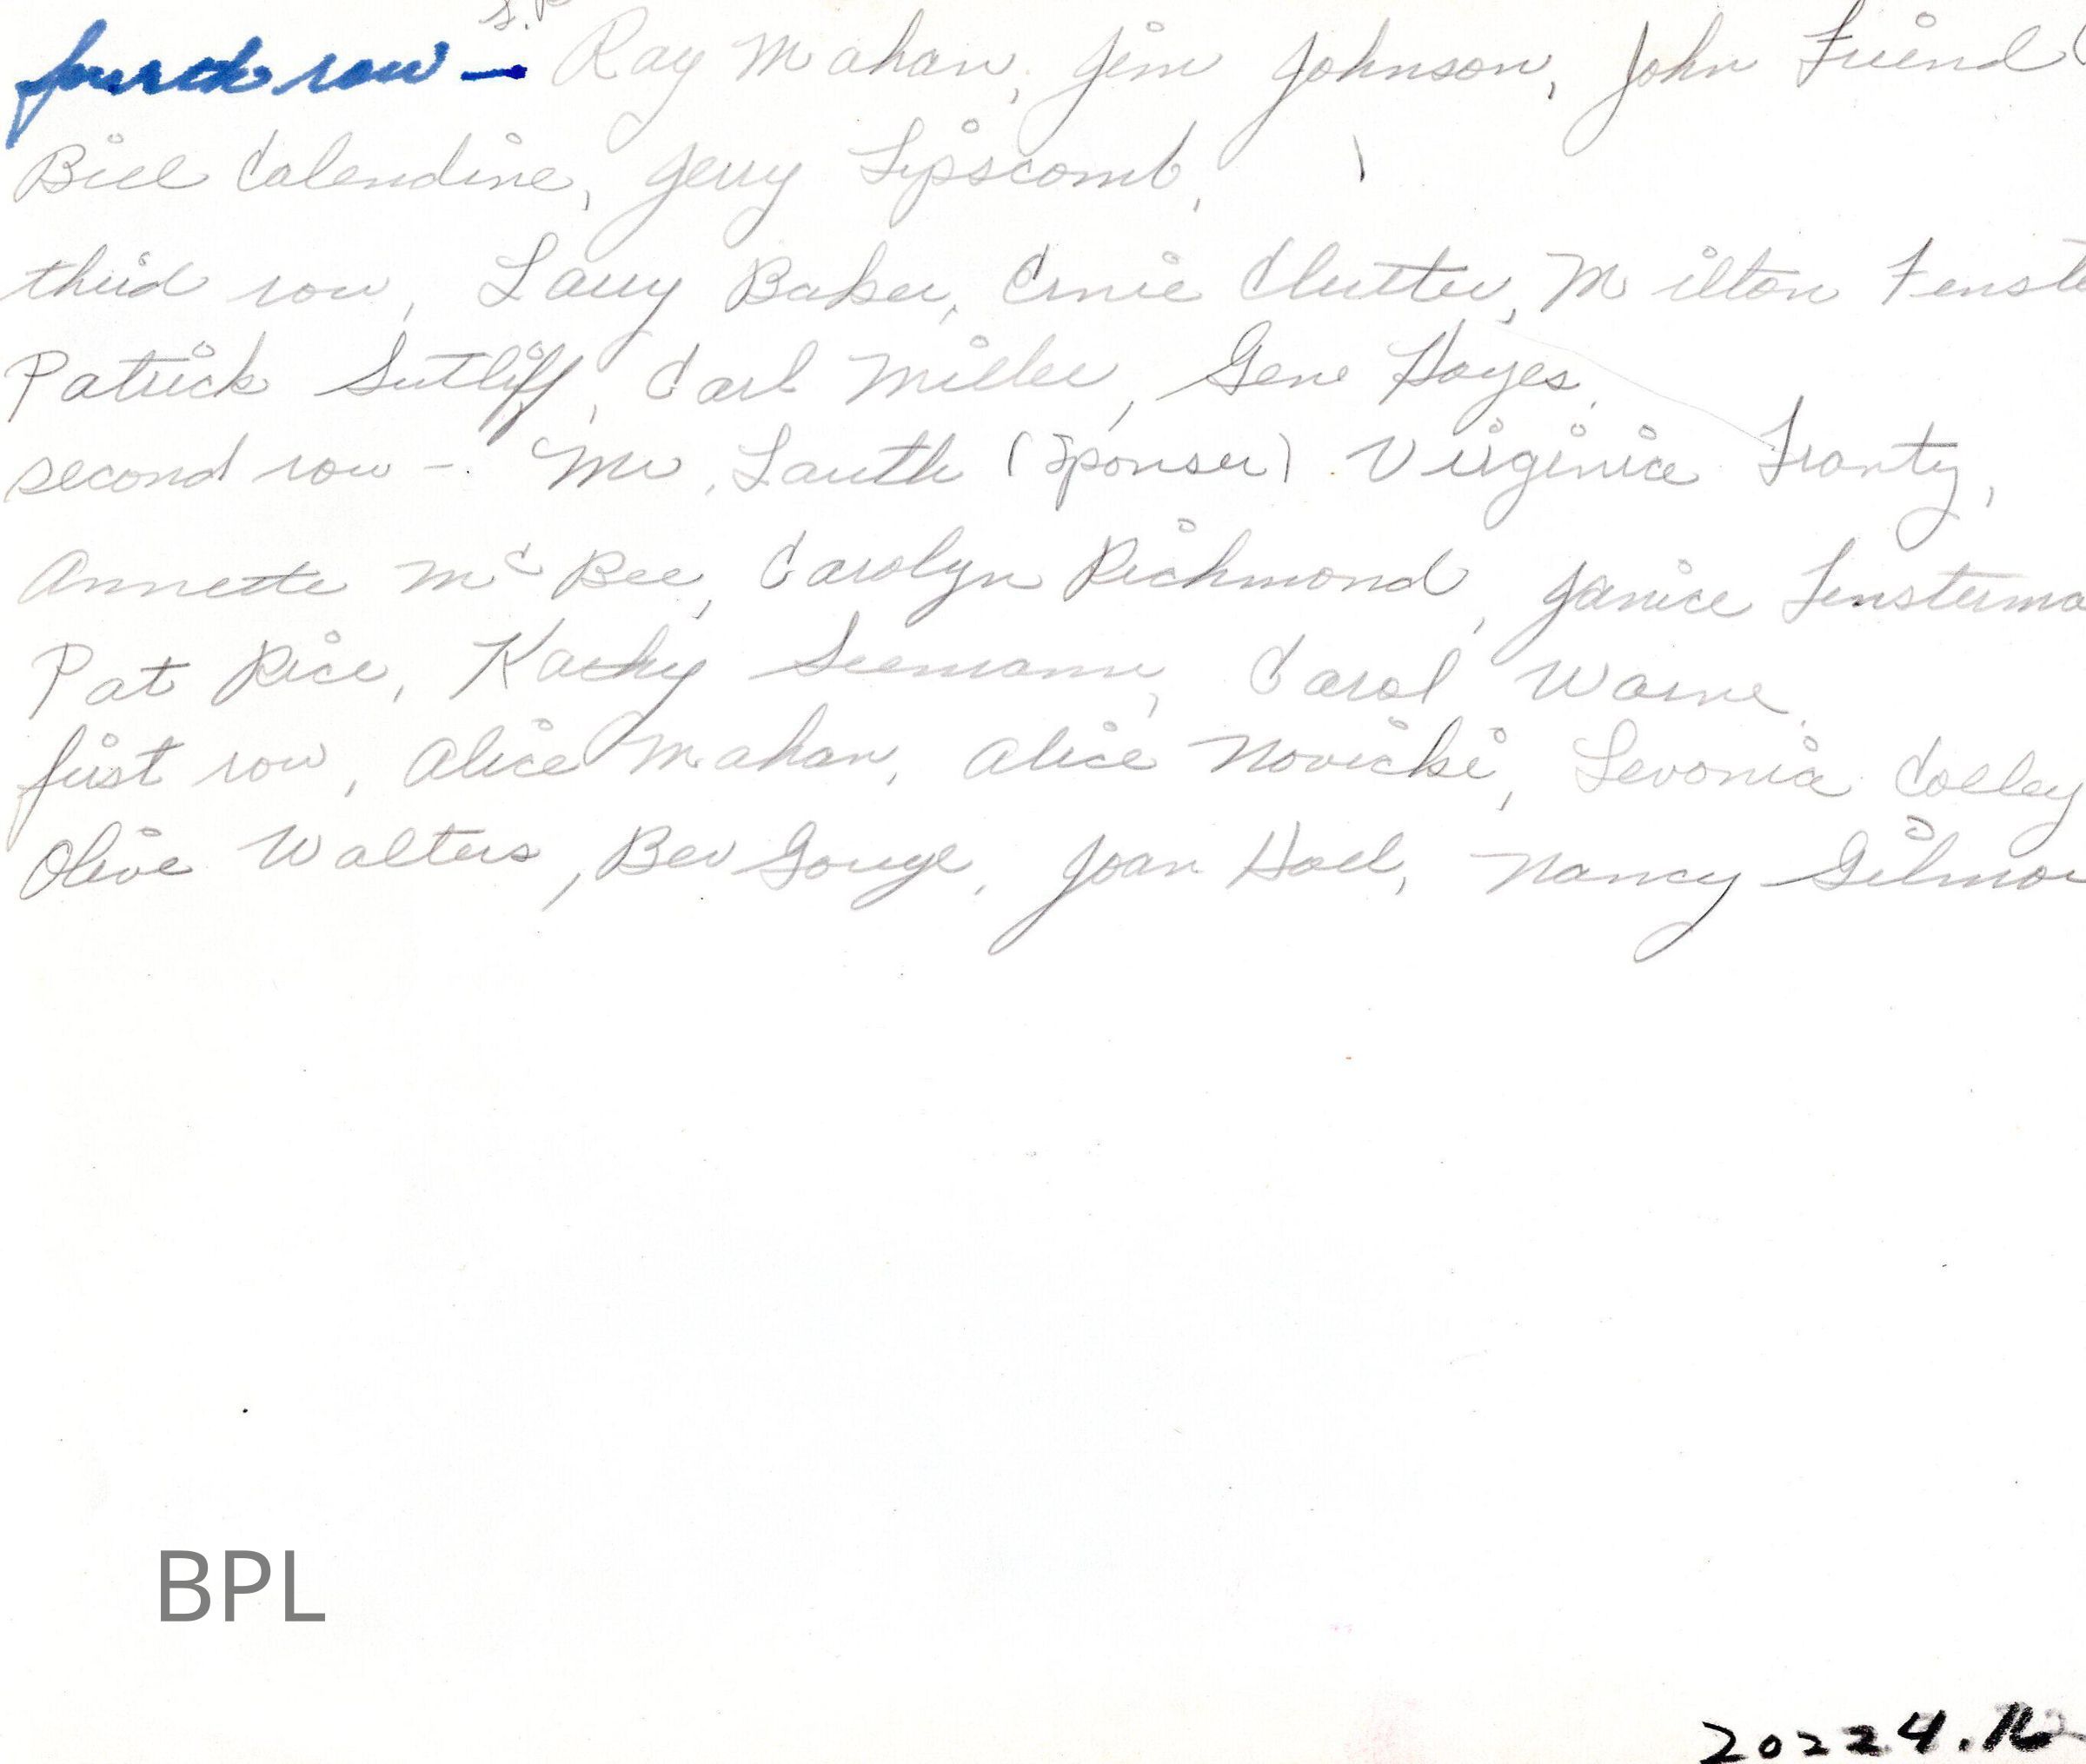 fourth row — Ray Mahan, Jim Johnson, John Friend (
Bill Calendine, Jerry Lipscomb,
third row, Larry Baker, Ernie Clutter, Milton Fenste
Patrick Sutliff, Carl Miller, Gene Hayes.
second row - Mr. Lauth (Sponser) Virginia Frantz,
Annette McBee, Carolyn Richmond, Janice Fensterma
Pat Rice, Kathy Seemann, Carol Warne.
first row, Alice Mahan, Alice Novicki, Levonia Colley
Olive Walters, Bev Gouge, Joan Hall, Nancy Gilmor
BPL